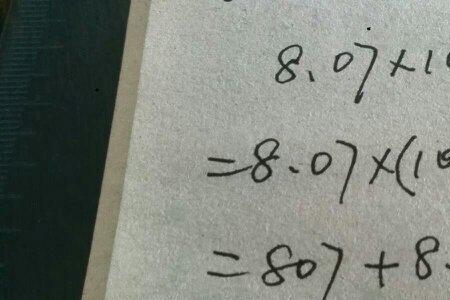 8.07×10
=8.07×(10
=807+8.